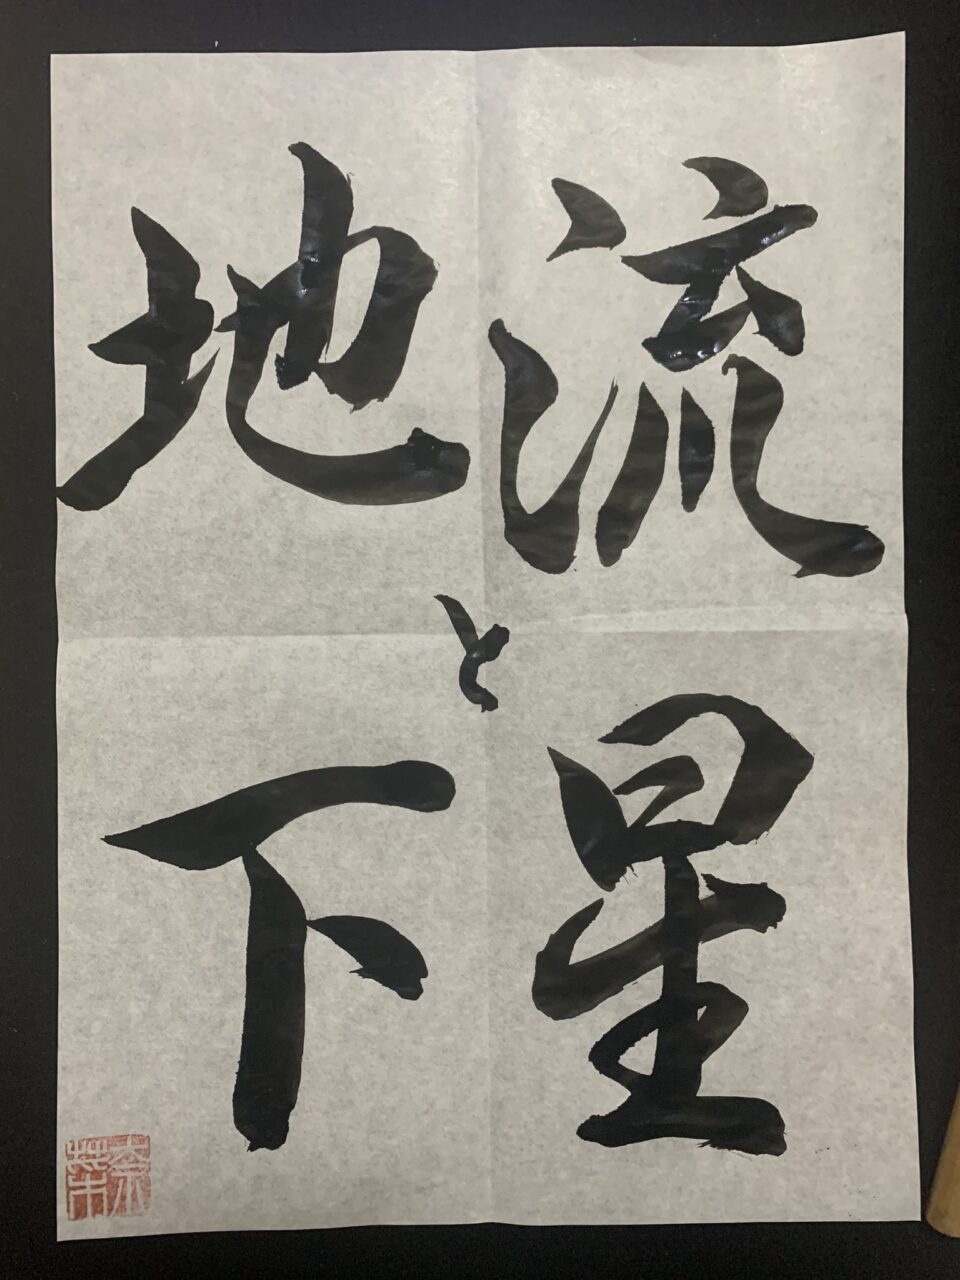 流星
と
地下